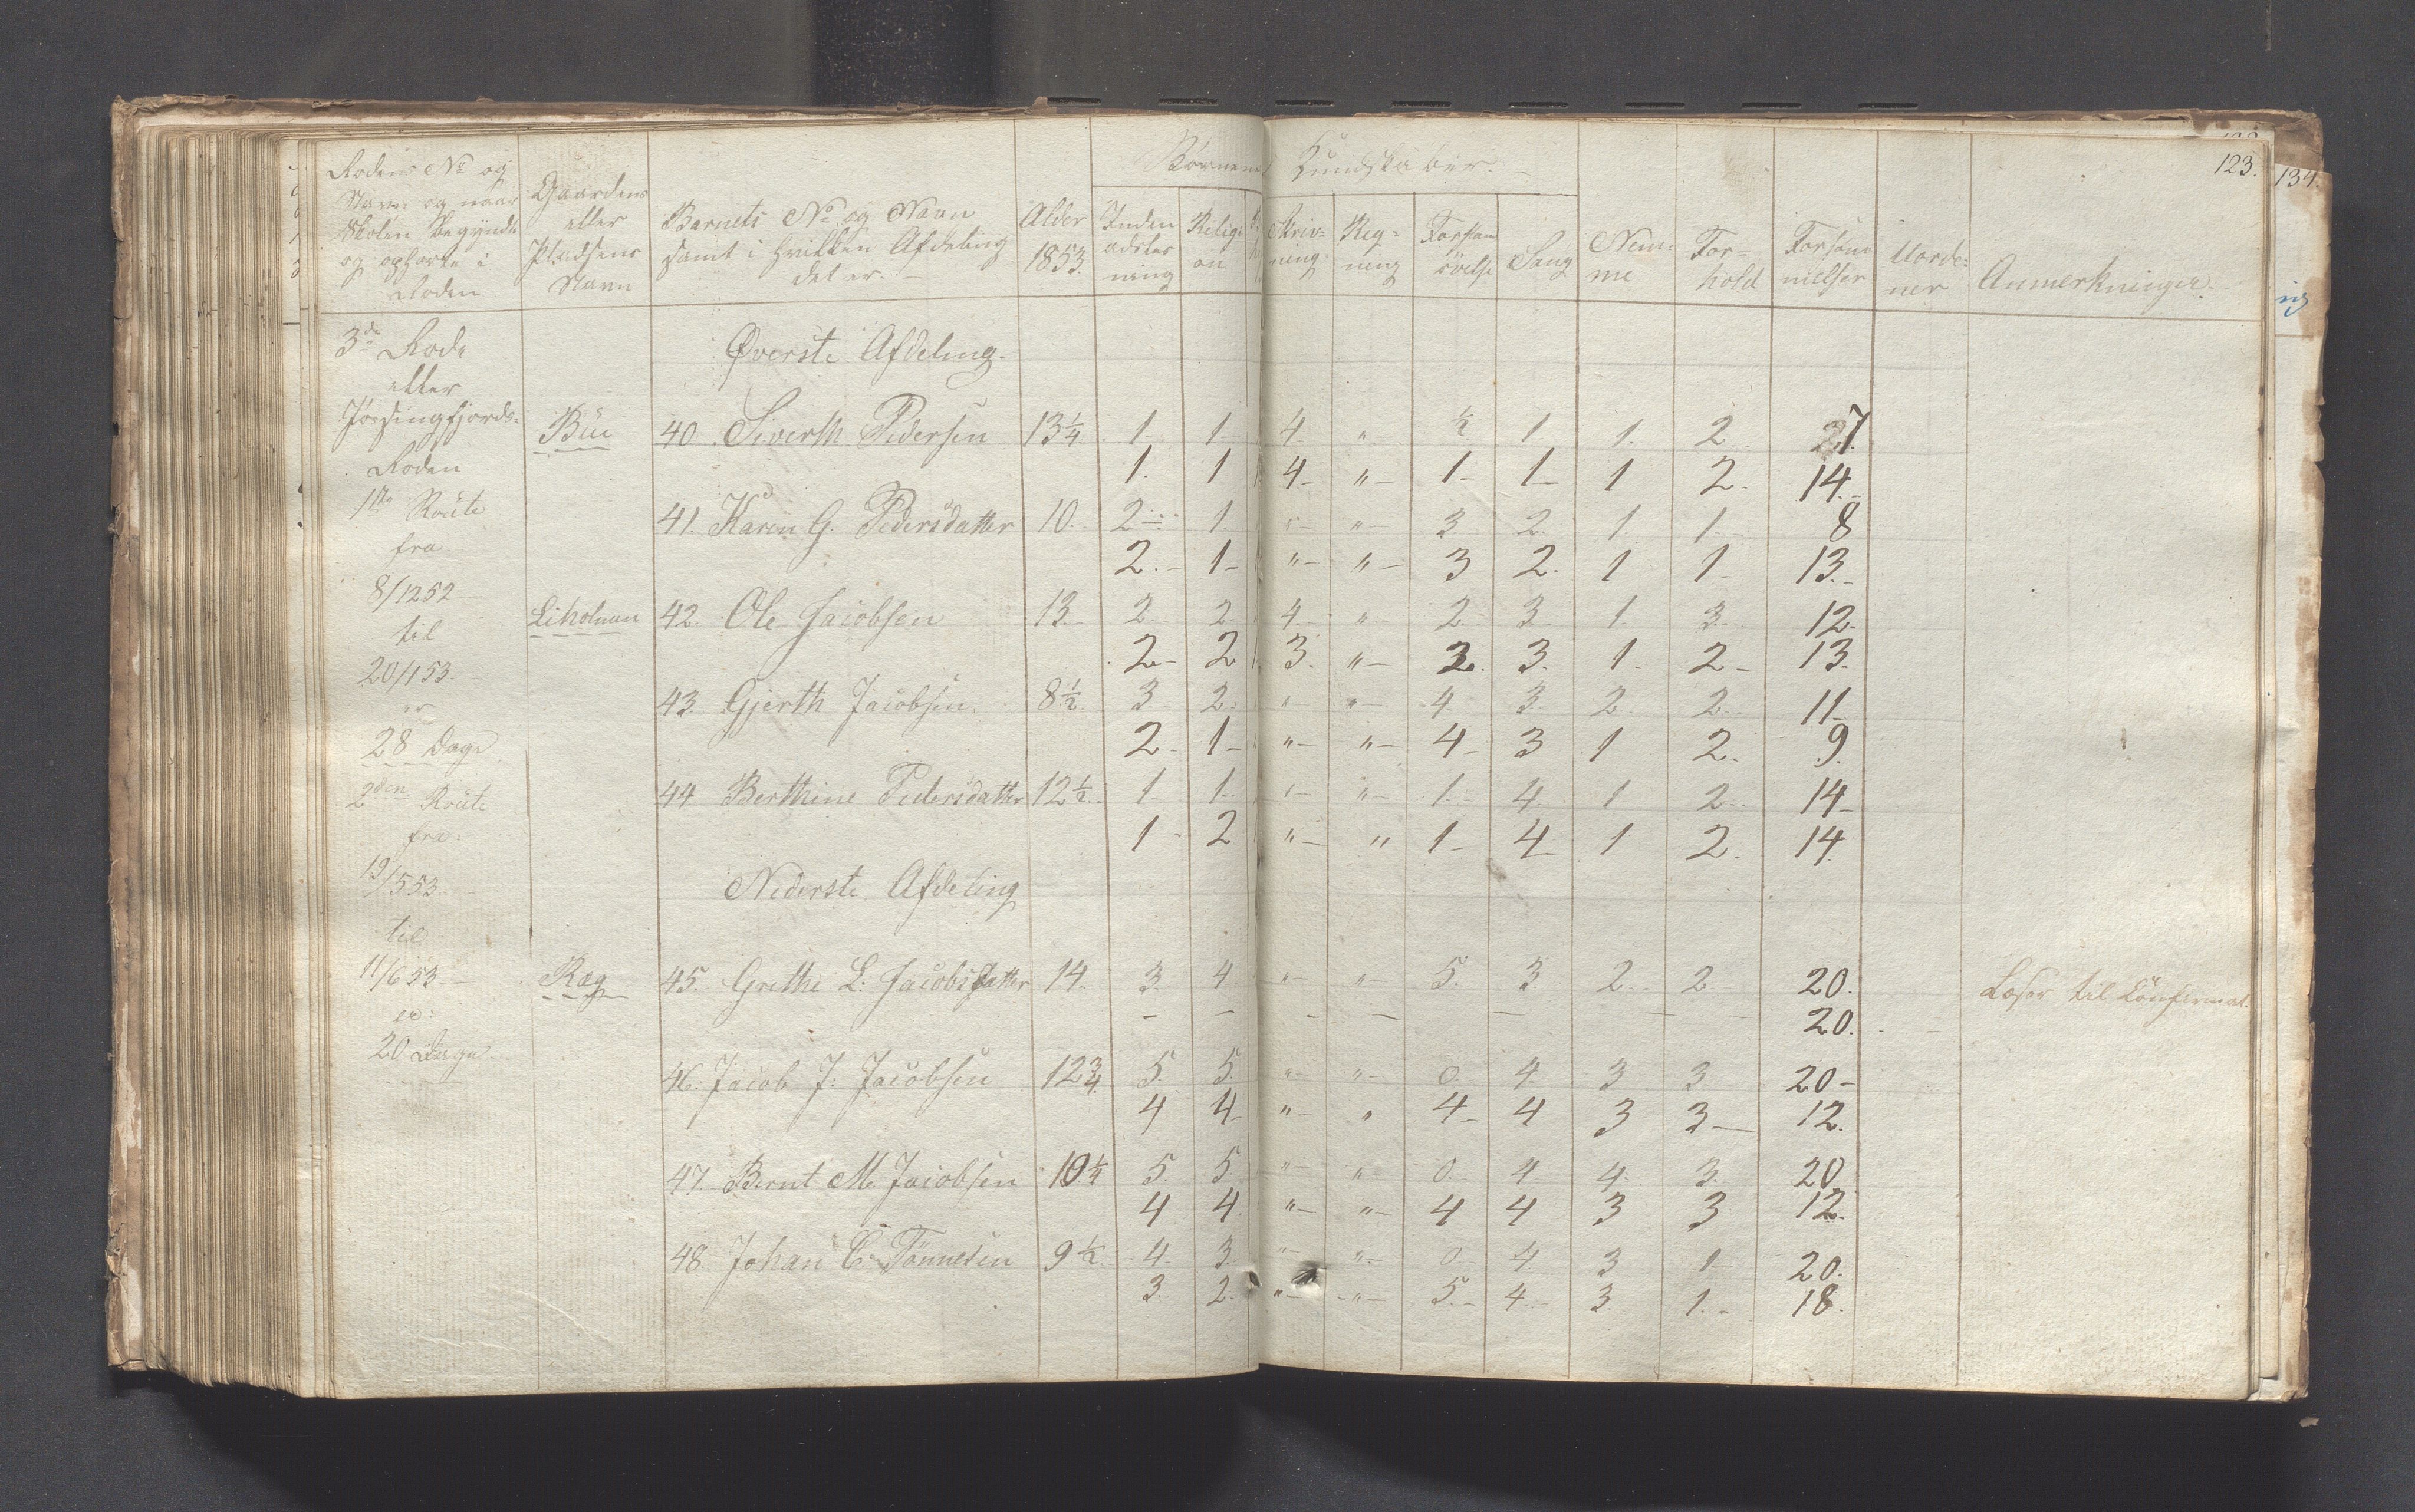 123.
134.
Børnenes Kundskaber.
Rodens No og Navn og naar Skolen begyndte og ophørte i Roden
Gaardens eller Pladsens Navn
Barnets No og Navn samt i hvilken Afdeling det er.
Alder 1853.
Inden adslæs ning
Religi on
Skriv= ning
Reg= ning
Sang
Nem= me
For= hold
Forsøm melser
Anmerkninger.
3die Rode
eller
Jøssingfjords=
Roden
1ste Route
fra
8/12 52
til
20/1 53
er
28 Dage
2den Route
fra:
19/5 53.
til
11/6 53
er:
20 Dage
Øverste Afdeling.
Bue 40. Siverth Pedersen 13¼ 1. 1. 4 " ½ 1 1. 2 7
1. 1 4 " 1 1 1 2. 14.
41. Karen G. Pedersdatter 10. 2 1. " " 3 2. 1. 1. 8
2. 1 " " 3 2. 1 1 13.
Liholmen 42. Ole Jacobsen 13. 2. 2. 4 " 2 3. 1. 3. 12.
2 2 3. " 2. 3. 1. 2 13.
43. Gjerth Jacobsen. 8½. 3 2. " " 4. 3. 2. 2. 11
2 1 " " 4 3 1 2. 9.
44 Berthine Pedersdatter 12½ 1. 1. " " 1. 4. 1 2. 14
1 2 " " 1 4 1 2. 14.
Nederste Afdeling
Ræg 45. Grethe L. Jacobsdatter 14. 3. 4 " " 5. 3. 2. 2. 20. Læser til Confirmat.
– – – – – – – 20.
46. Jacob J. Jacobsen 12¾ 5. 5. " " 0. 4. 3 3 20
4 4 " " 4 4 3 3 12.
47. Bernt M. Jacobsen 10¼ 5. 5 " " 0. 4 4. 3. 20
4 4. " " 4 4 3 3 12.
48. Johan C. Tønnesen 9½. 4. 3. " " 0 4 3 1 20.
3. 2. " " 5. 4. 3. 1. 18.